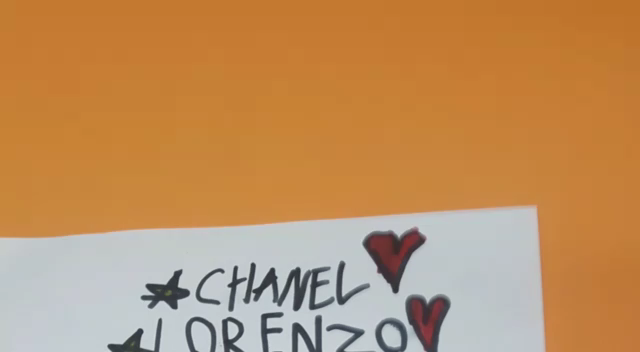 CHANEL
LORENZO